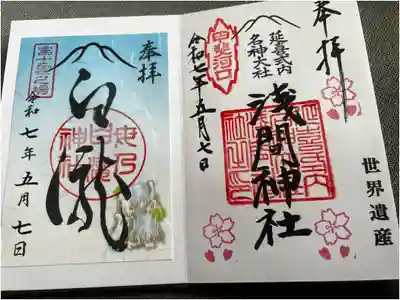 奉拝
延喜式内
名神大社
甲斐河口
淺間神社
令和七年五月七日
世界遺産
奉拝
白瀧
母乃
白瀧
神社
令和七年五月七日